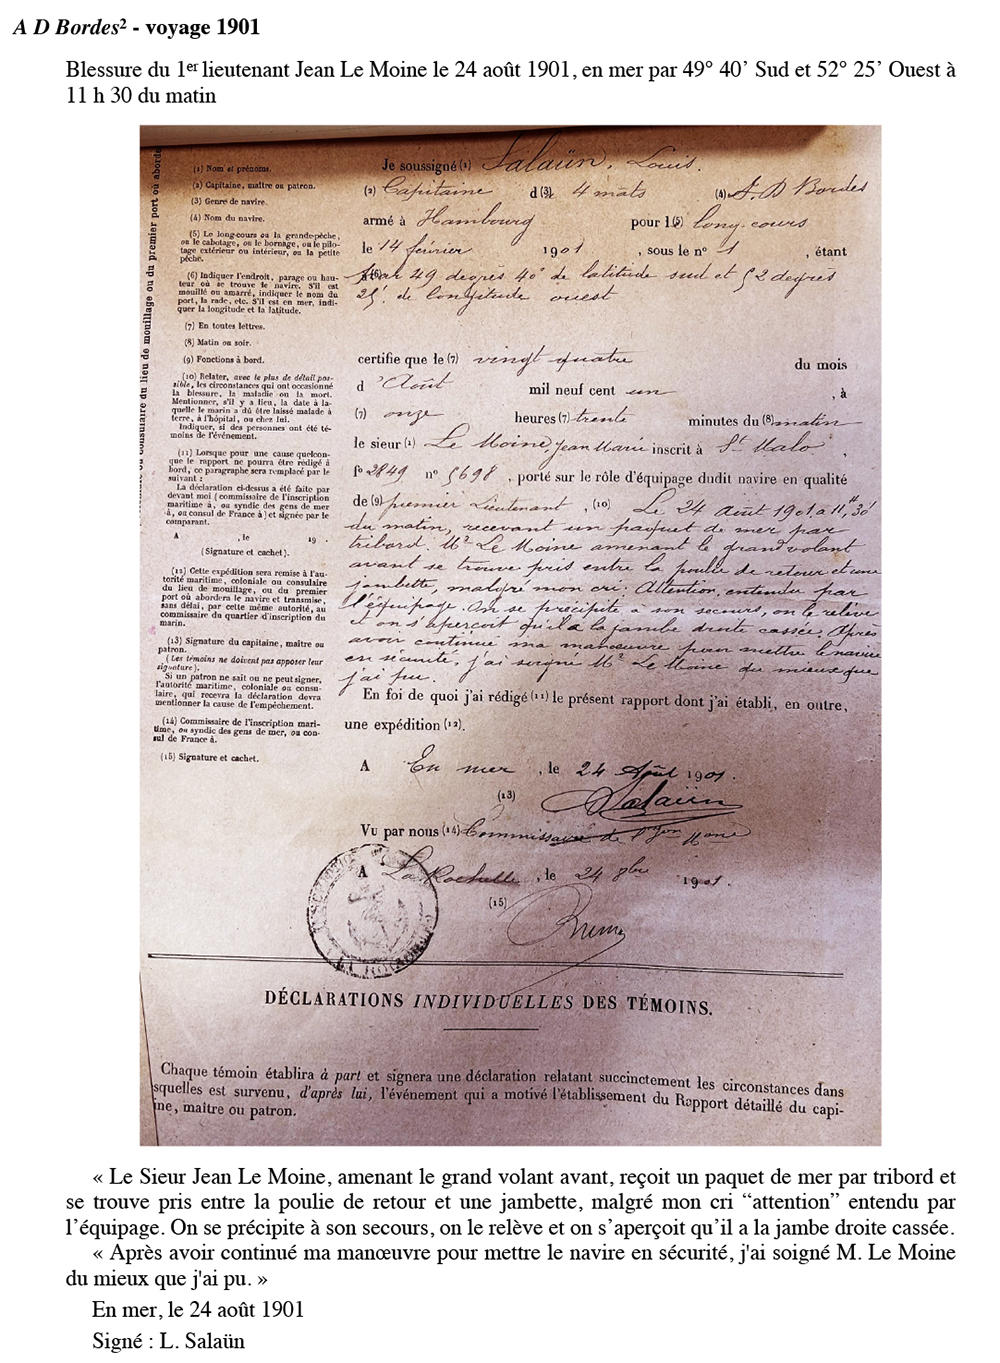 A D Bordes² - voyage 1901
Blessure du 1er lieutenant Jean Le Moine le 24 août 1901, en mer par 49° 40’ Sud et 52° 25’ Ouest à
11 h 30 du matin
(1) Nom et prénoms.
(2) Capitaine, maître ou patron.
(3) Genre de navire.
(4) Nom du navire.
(5) Le long-cours ou la grande-pêche,
ou le cabotage, ou le bornage, ou le pilo-
tage extérieur ou intérieur, ou la petite
pêche.
(6) Indiquer l'endroit, parage ou hau-
teur où se trouve le navire. S'il est
mouillé ou amarré, indiquer le nom du
port, la rade, etc. S'il est en mer, indi-
quer la longitude et la latitude.
(7) En toutes lettres.
(8) Matin ou soir.
(9) Fonctions à bord.
(10) Relater, avec le plus de détail pos-
sible, les circonstances qui ont occasionné
la blessure, la maladie ou la mort.
Mentionner, s'il y a lieu, la date à la-
quelle le marin a dû être laissé malade à
terre, à l'hôpital, ou chez lui.
Indiquer, si des personnes ont été té-
moins de l'événement.
(11) Lorsque pour une cause quelcon-
que le rapport ne pourra être rédigé à
bord, ce paragraphe sera remplacé par le
suivant :
La déclaration ci-dessus a été faite par
devant moi (commissaire de l'inscription
maritime à, ou syndic des gens de mer
à, ou consul de France à) et signée par le
comparant.
A , le 19 .
(Signature et cachet).
(12) Cette expédition sera remise à l'au-
torité maritime, coloniale ou consulaire
du lieu de mouillage, ou du premier
port où abordera le navire et transmise,
sans délai, par cette même autorité, au
commissaire du quartier d'inscription du
marin.
(13) Signature du capitaine, maître ou
patron.
(Les témoins ne doivent pas apposer leur
signature).
Si un patron ne sait ou ne peut signer,
l'autorité maritime, coloniale ou consu-
laire, qui recevra la déclaration devra
mentionner la cause de l'empêchement.
(14) Commissaire de l'inscription mari-
time, ou syndic des gens de mer, ou con-
sul de France à.
(15) Signature et cachet.
consulaire du lieu de mouillage ou du premier port où aborde
Je soussigné (1) Salaün, Louis.
(2) Capitaine d (3) 4 mâts (4) A. D Bordes
armé à Hambourg pour l (5) long-cours
le 14 février 1901 , sous le n° 1 , étant
(6) par 49 degrés 40' de latitude sud et 52 degrés
25' de longitude ouest
certifie que le (7) vingt quatre du mois
d 'Août mil neuf cent un , à
(7) onze heures (7) trente minutes du (8) matin
le sieur (1) Le Moine, Jean Marie inscrit à St Malo ,
fo 2849 n° 5698 , porté sur le rôle d'équipage dudit navire en qualité
de (9) premier Lieutenant , (10) Le 24 août 1901 à 11h 30
du matin, recevant un paquet de mer par
tribord. Mr Le Moine amenant le grand volant
avant se trouve pris entre la poulie de retour et une
jambette, malgré mon cri. Attention, entendu par
l'équipage. On se précipite à son secours, on le relève
et on s'aperçoit qu'il a la jambe droite cassée. Après
avoir continué ma manœuvre pour mettre le navire
en sécurité, j'ai soigné Mr Le Moine du mieux que
j'ai pu.
En foi de quoi j'ai rédigé (11) le présent rapport dont j'ai établi, en outre,
une expédition (12).
A En mer , le 24 Août 1901.
(13) Salaün
Vu par nous (14) Commissaire de l'Ion Mme
A La Rochelle , le 24 8bre 1901.
(15)
DÉCLARATIONS INDIVIDUELLES DES TÉMOINS.
Chaque témoin établira à part et signera une déclaration relatant succinctement les circonstances dans
squelles est survenu, d'après lui, l'événement qui a motivé l'établissement du Rapport détaillé du capi-
ine, maître ou patron.
« Le Sieur Jean Le Moine, amenant le grand volant avant, reçoit un paquet de mer par tribord et
se trouve pris entre la poulie de retour et une jambette, malgré mon cri “attention” entendu par
l’équipage. On se précipite à son secours, on le relève et on s’aperçoit qu’il a la jambe droite cassée.
« Après avoir continué ma manœuvre pour mettre le navire en sécurité, j'ai soigné M. Le Moine
du mieux que j'ai pu. »
En mer, le 24 août 1901
Signé : L. Salaün